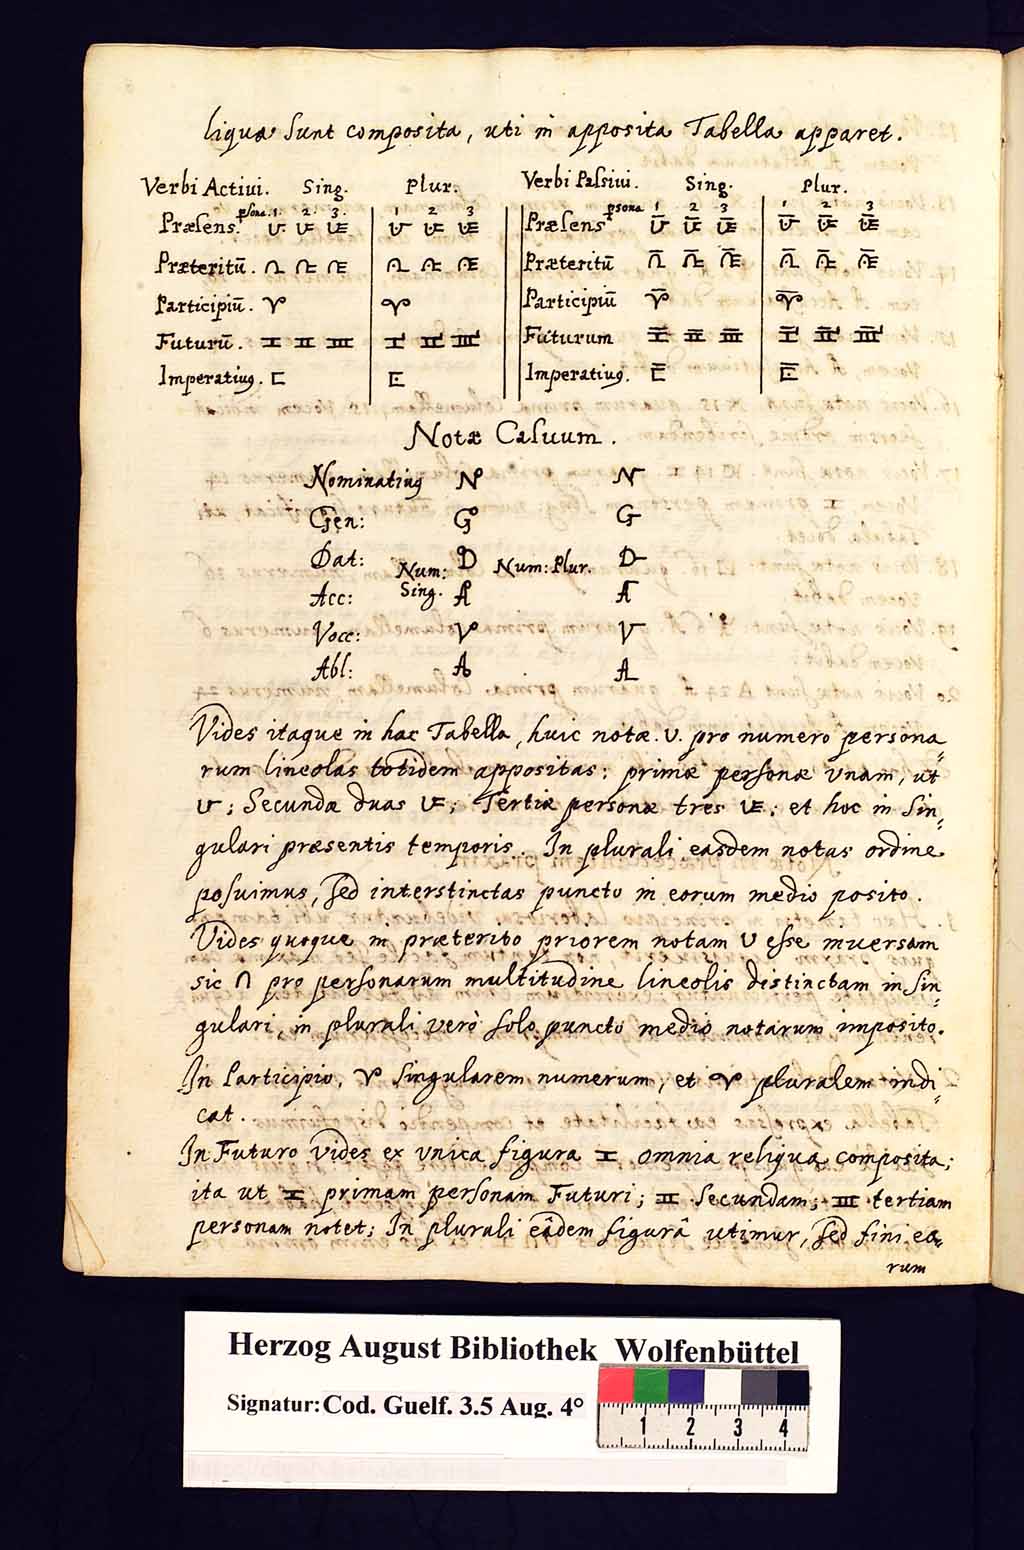 liquæ sunt composita, uti in apposita Tabella apparet.
Verbi Actiui. Sing. Plur. Verbi Passiui. Sing. Plur.
Præsens. psona. 1. 2. 3. 1 2 3 Præsens psona 1 2 3 1 2 3
Præteritū. Præteritū
Participiū. Participiū
Futurū. Futurum
Imperatiuꝯ. Imperatiuꝯ.
Notæ Casuum.
Nominatiuꝯ N N
Gen: G G
Dat: Num: Sing. D Num: Plur. D
Acc: A A
Voce: V V
Abl: A A
Vides itaque in hac Tabella, huic notæ. U. pro numero persona
rum lineolas totidem appositas: primæ personæ vnam, ut
; Secundæ duas ; Tertiæ personæ tres : et hoc in sin
gulari præsentis temporis. In plurali easdem notas ordine
posuimus, sed interstinctas puncto in eorum medio posito.
Vides quoque in præterito priorem notam U esse inuersam
sic ∩ pro personarum multitudine lineolis distinctam in sin
gulari, in plurali verò solo puncto medio notarum imposito.
In Participio, ♈ singularem numerum, et pluralem indi
cat.
In Futuro vides ex vnica figura omnia reliqua composita;
ita ut primam personam Futuri; secundam; tertiam
personam notet; In plurali eâdem figurâ utimur, sed fini eo
rum
Herzog August Bibliothek Wolfenbüttel
Signatur: Cod. Guelf. 3.5 Aug. 4°
1 2 3 4